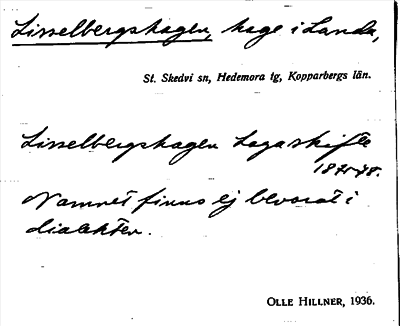 Lisselbergshagen, hage i Landa,
St. Skedvi sn, Hedemora tg, Kopparbergs län.
Lisselbergshagen Lagaskifte
1875-78.
Namnet finns ej bevarat i
dialekten.
OLLE HILLNER, 1936.